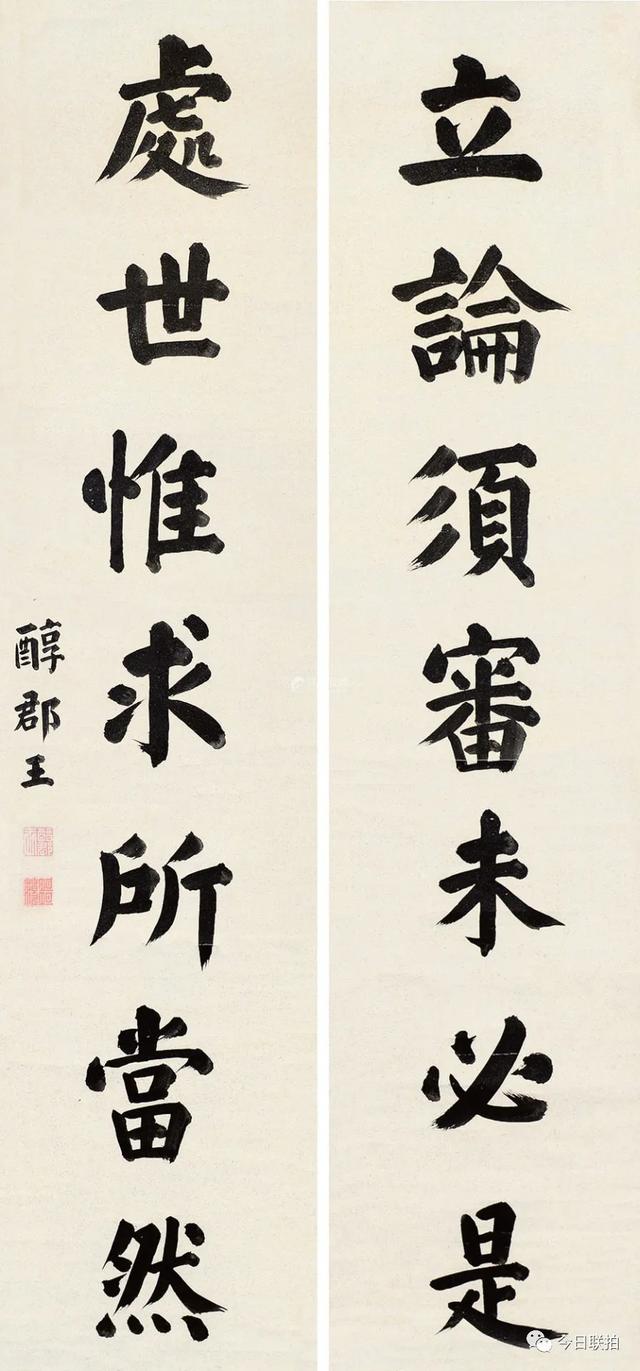 立論須審未必是
處世惟求所當然
醇郡王
今日联拍